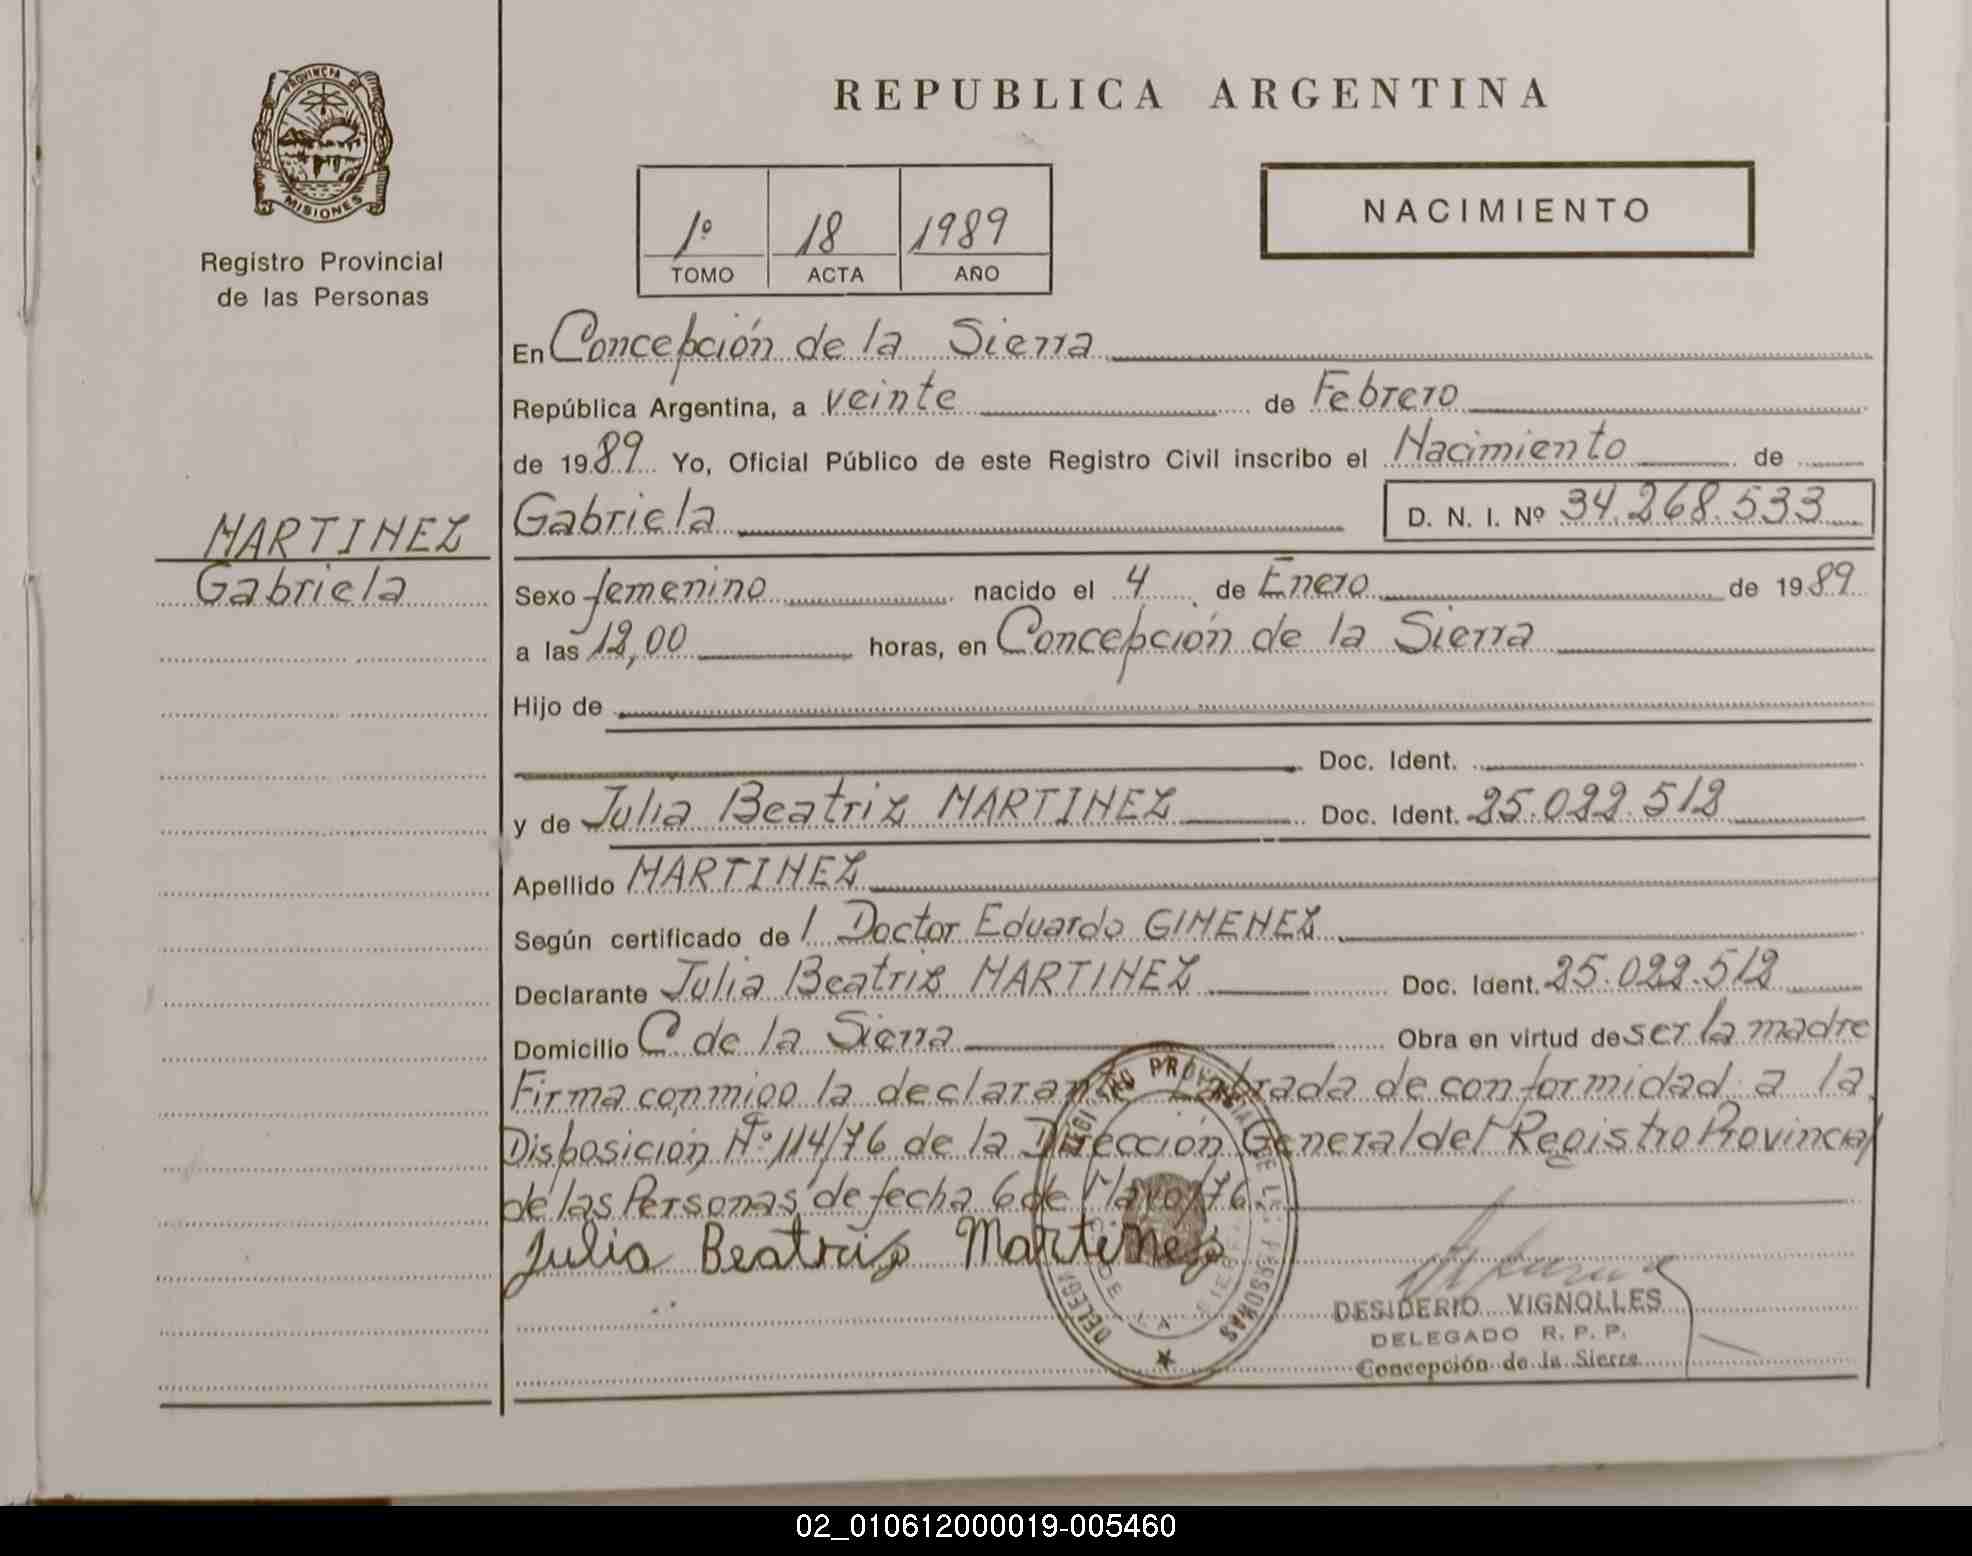 PROVINCIA DE
MISIONES
Registro Provincial
de las Personas
MARTINEZ
Gabriela
REPUBLICA ARGENTINA
1º 18 1989
TOMO ACTA AÑO
NACIMIENTO
En Concepción de la Sierra
República Argentina, a veinte de Febrero
de 1989 Yo, Oficial Público de este Registro Civil inscribo el Nacimiento de
Gabriela D. N. I. Nº 34.268.533
Sexo femenino nacido el 4 de Enero de 1989
a las 12,00 horas, en Concepción de la Sierra
Hijo de
Doc. Ident.
y de Julia Beatriz MARTINEZ Doc. Ident. 25.022.512
Apellido MARTINEZ
Según certificado de l Doctor Eduardo GIMENEZ
Declarante Julia Beatriz MARTINEZ Doc. Ident. 25.022.512
Domicilio C de la Sierra Obra en virtud de ser la madre
Firma conmigo la declarante Labrada de conformidad a la
Disposición Nº 114/76 de la Dirección General del Registro Provincial
de las Personas de fecha 6 de Mayo/76.
Julia Beatriz Martinez
DESIDERIO VIGNOLLES
DELEGADO R. P. P.
Concepción de la Sierra
02_010612000019-005460